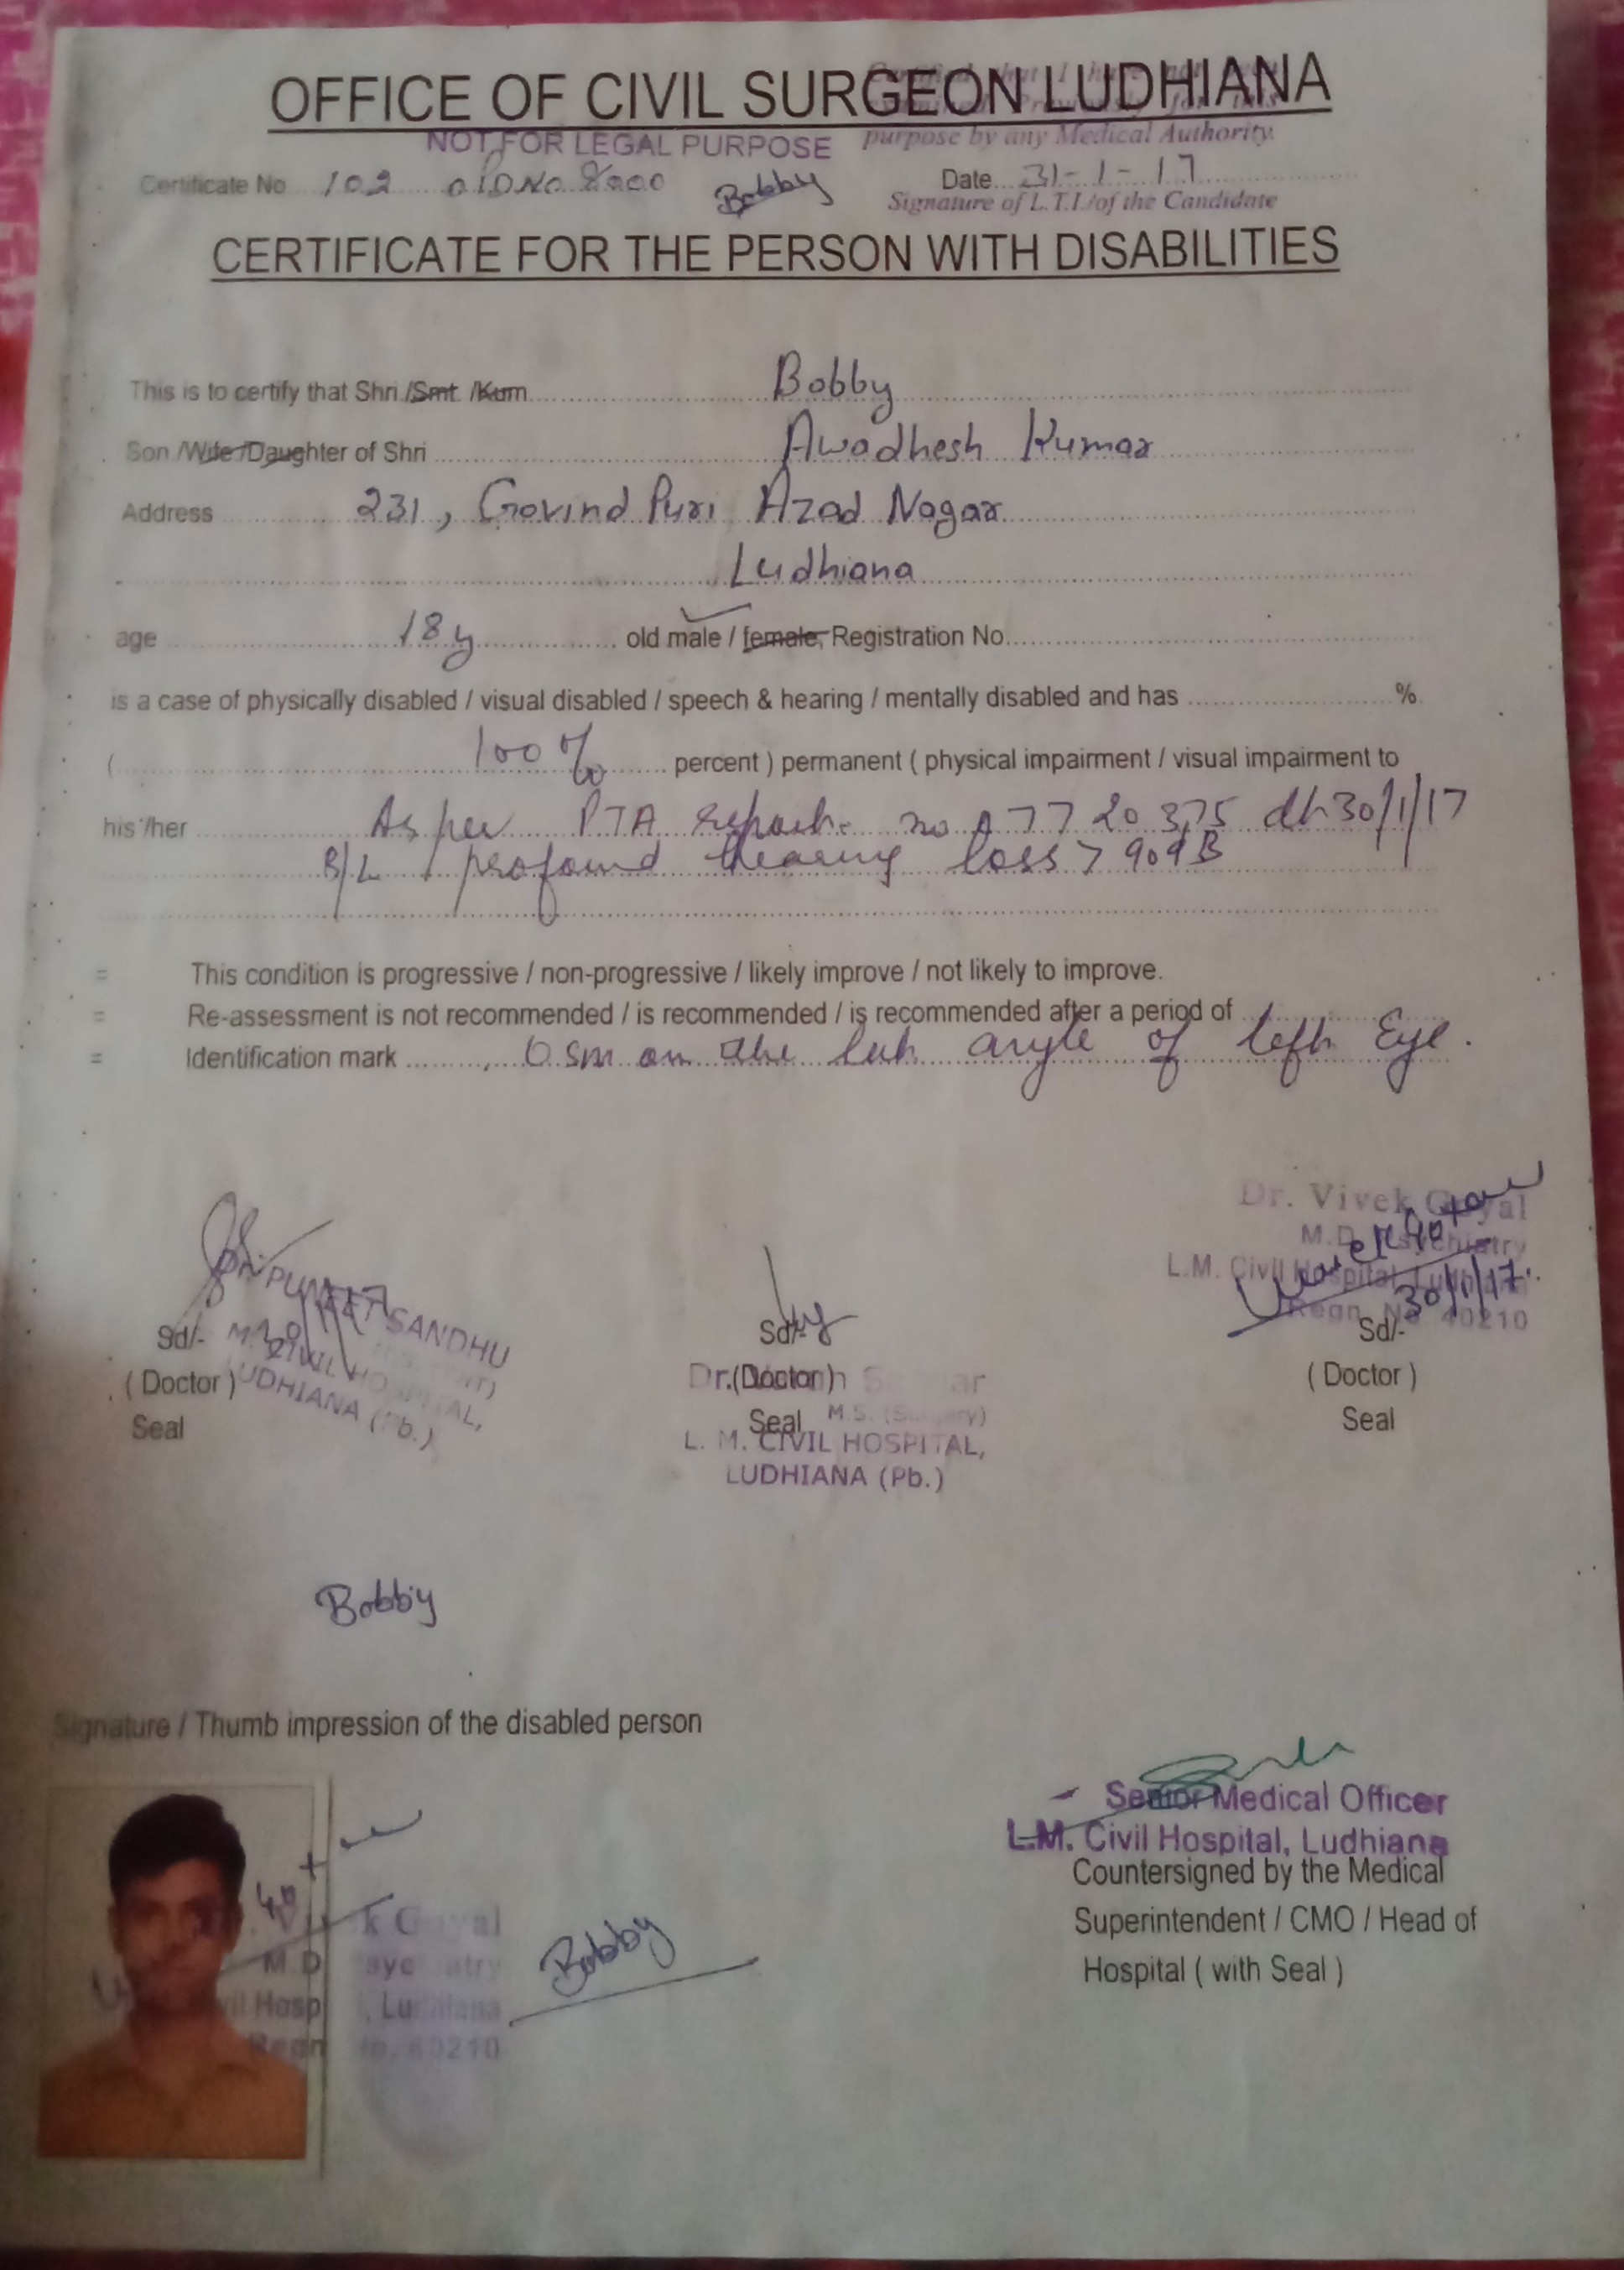 OFFICE OF CIVIL SURGEON LUDHIANA
NOT FOR LEGAL PURPOSE
purpose by any Medical Authority.
Certificate No 102 Bobby Date 31-1-17
Signature of L.T.I./of the Candidate
CERTIFICATE FOR THE PERSON WITH DISABILITIES
This is to certify that Shri./Smt. /Kum Bobby
Son /Wife /Daughter of Shri Awadhesh Kumar
Address 231, Govind Puri Azad Nagar
Ludhiana
age 18y old male / female, Registration No.
is a case of physically disabled / visual disabled / speech & hearing / mentally disabled and has %
( 100% percent ) permanent ( physical impairment / visual impairment to
his /her As per PTA report no 30/1/17
B/L profound hearing loss > 90dB
= This condition is progressive / non-progressive / likely improve / not likely to improve.
= Re-assessment is not recommended / is recommended / is recommended after a period of
= Identification mark on the angle of left Eye.
Dr. Vivek Goyal
M.D. Psychiatry
L.M. Civil Hospital, Ludhiana
Regn. No. 40210
30/1/17
DR. PUNEET SANDHU
CIVIL HOSPITAL,
LUDHIANA (Pb.)
Sd/- Sd/- Sd/-
( Doctor ) Dr. (Doctor) ( Doctor )
Seal Seal M.S. (Surgery) Seal
L. M. CIVIL HOSPITAL,
LUDHIANA (Pb.)
Bobby
Signature / Thumb impression of the disabled person
Senior Medical Officer
L.M. Civil Hospital, Ludhiana
Countersigned by the Medical
Superintendent / CMO / Head of
Hospital ( with Seal )
Goyal
M.D
Regn No. 40210
Bobby